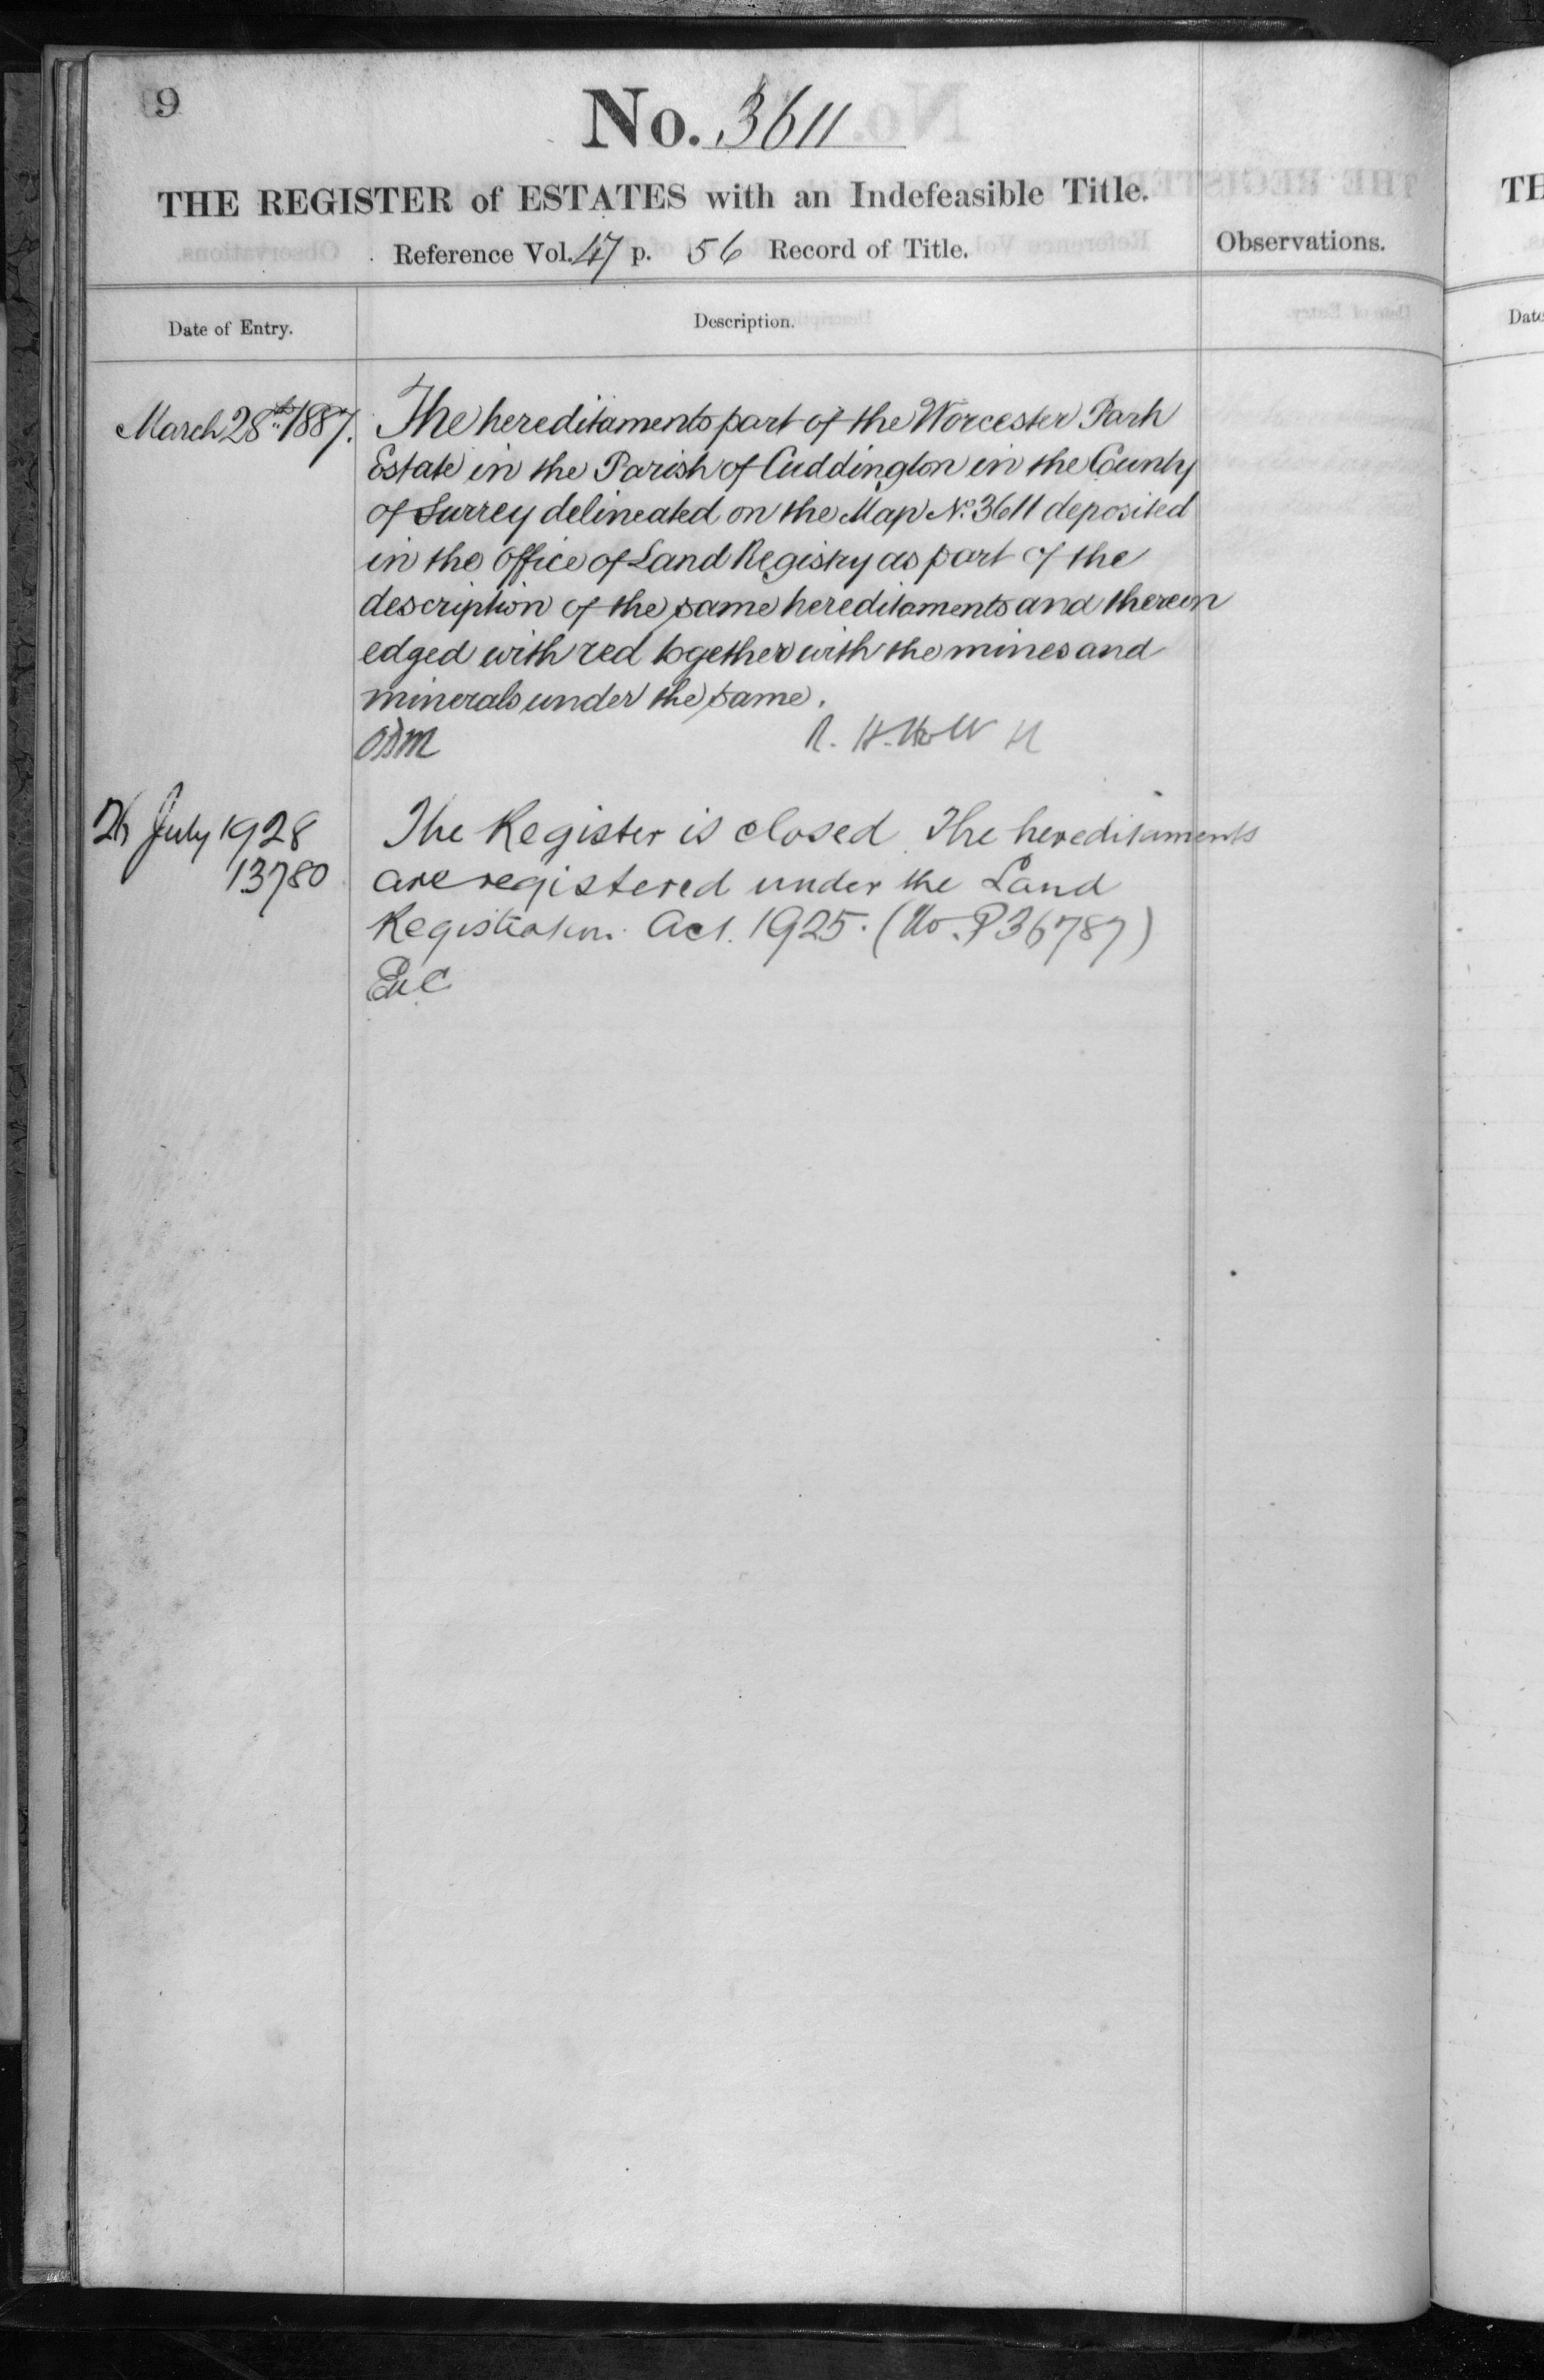 9
No. 3611
THE REGISTER of ESTATES with an Indefeasible Title.
Reference Vol. 47 p. 56 Record of Title.
Observations.
Date of Entry.
Description.
March 28th 1887.
The hereditaments part of the Worcester Park
Estate in the Parish of Cuddington in the County
of Surrey delineated on the Map No. 3611 deposited
in the Office of Land Registry as part of the
description of the same hereditaments and therein
edged with red together with the mines and
minerals under the same.
July 1928
13780
The Register is closed. The hereditaments
are registered under the Land
Registration Act. 1925. (No. P36787)
TH
Date